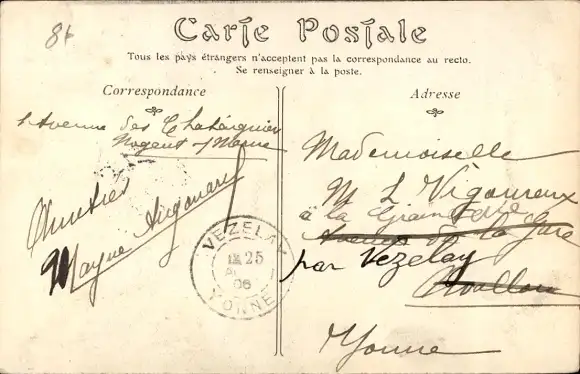 8t
Carte Postale
Tous les pays étrangers n'acceptent pas la correspondance au recto.
Se renseigner à la poste.
Correspondance
Adresse
Avenue des Chataigniers
Nogent s/ Marne
Amitiés
VEZELAY
25
06
YONNE
Mademoiselle
M L Vigoureux
à la Grande
Avenue de la Gare
par Vezelay
Avallon
Yonne